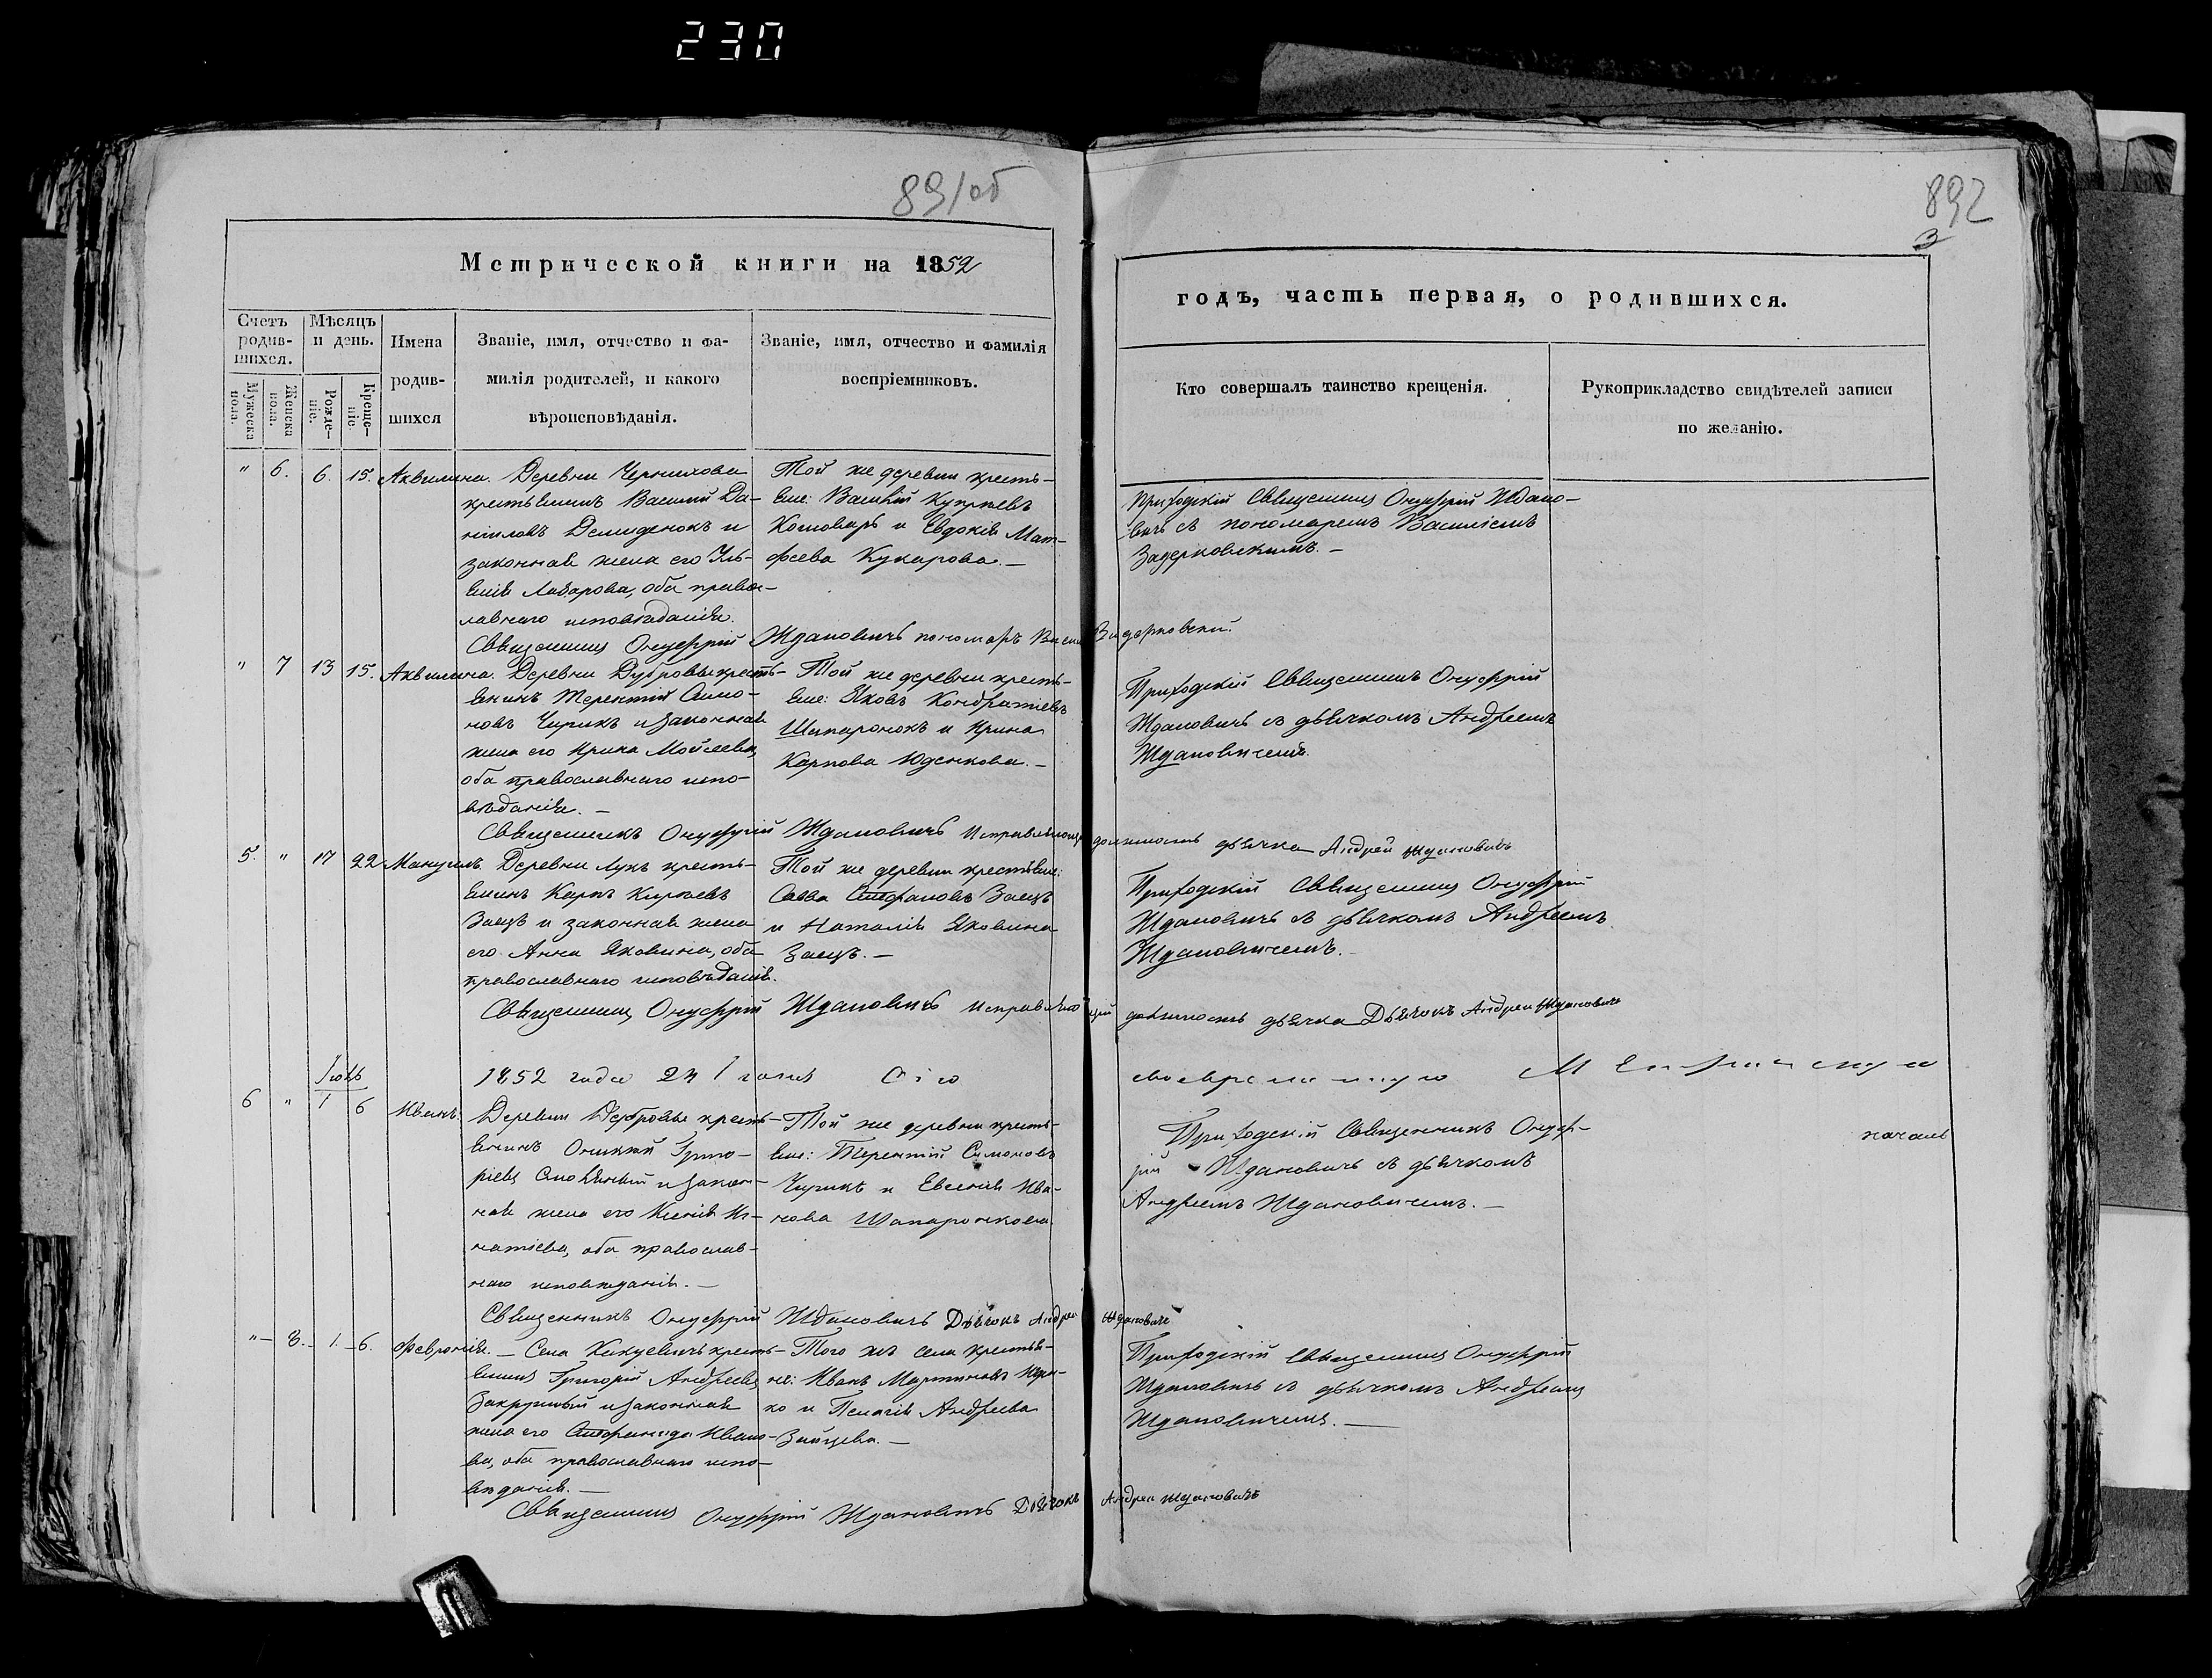 230
891об
892
3
Метрической книги на 1852
годъ, часть первая, о родившихся.
Счетъ родив-шихся.
Мѣсяцъ и день.
Мужеска пола.
Женска пола.
Рожде-ніе.
Креще-ніе.
Имена
родив-
шихся
Званіе, имя, отчество и фа-
милія родителей, и какого
вѣроисповѣданія.
Званіе, имя, отчество и фамилія
воспріемниковъ.
Кто совершалъ таинство крещенія.
Рукоприкладство свидѣтелей записи
по желанію.
" 6. 6. 15. Аквилина.
Деревни Чернихова
крестьянинъ Василій Да-
ниловъ Демиденокъ и
законная жена его Уль-
яна Лазарова, оба право-
славнаго исповѣданія.
Той же деревни кресть-
яне: Василій Купріевъ
Кошоваръ и Евдокія Мат-
феева Кухарова. —
Приходскій Священникъ Онуфрій Ждано-
вичъ съ пономаремъ Василіемъ
Задерковскимъ. —
Священникъ Онуфрій Ждановичъ пономарь Задерковскій.
" 7 13 15. Аквилина.
Деревни Дубровы кресть-
янинъ Терентій Симо-
новъ Чирикъ и законная
жена его Ирина Мойсеева,
оба православнаго испо-
вѣданія. —
Той же деревни кресть-
яне: Яковъ Кондратіевъ
Шапаронокъ и Ирина
Карпова Юденкова. —
Приходскій Священникъ Онуфрій
Ждановичъ съ дьячкомъ Андреемъ
Ждановичемъ.
Священникъ Онуфрій Ждановичъ Исправляющ должность дьячка Андрей Ждановичъ
5. " 17 22 Мануилъ.
Деревни Лукъ кресть-
янинъ Карпъ
Заецъ и законная жена
его Анна Яковлина, оба
православнаго исповѣданія.
Той же деревни крестьяне:
Савва Стефановъ Заецъ
и Наталія Яковлина
Заецъ. —
Приходскій Священникъ Онуфрій
Ждановичъ съ дьячкомъ Андреемъ
Ждановичемъ. —
Священникъ Онуфрій Ждановичъ Исправляющій должность дьячка Дьячокъ Андрей Ждановичъ
1852 года 24 Сію
Іюнь
6 " 1 6 Иванъ.
Деревни Дубровы кресть-
янинъ Григо-
ріевъ и закон-
ная жена его Ксенія Иг-
натіева, оба православ-
наго исповѣданія. —
Той же деревни кресть-
яне: Терентій Симоновъ
Чирикъ и Евгенія Ива-
нова Шапаронкова
Приходскій Священникъ Онуф-
рій Ждановичъ съ дьячкомъ
Андреемъ Ждановичемъ. —
Священникъ Онуфрій Ждановичъ Дьячокъ Андрей Ждановичъ
" — 8. — 1. — 6. Февронія. —
Села кресть-
янинъ Григорій Андреевъ
Закружный и законная
жена его Стефанида Ивано-
ва, оба православнаго испо-
вѣданія. —
Того же села крестья-
не: Иванъ Мартиновъ
и Пелагія Андреева
Зайцева. —
Приходскій Священникъ Онуфрій
Ждановичъ съ дьячкомъ Андреемъ
Ждановичемъ. —
Священникъ Онуфрій Ждановичъ Дьячокъ Андрей Ждановичъ